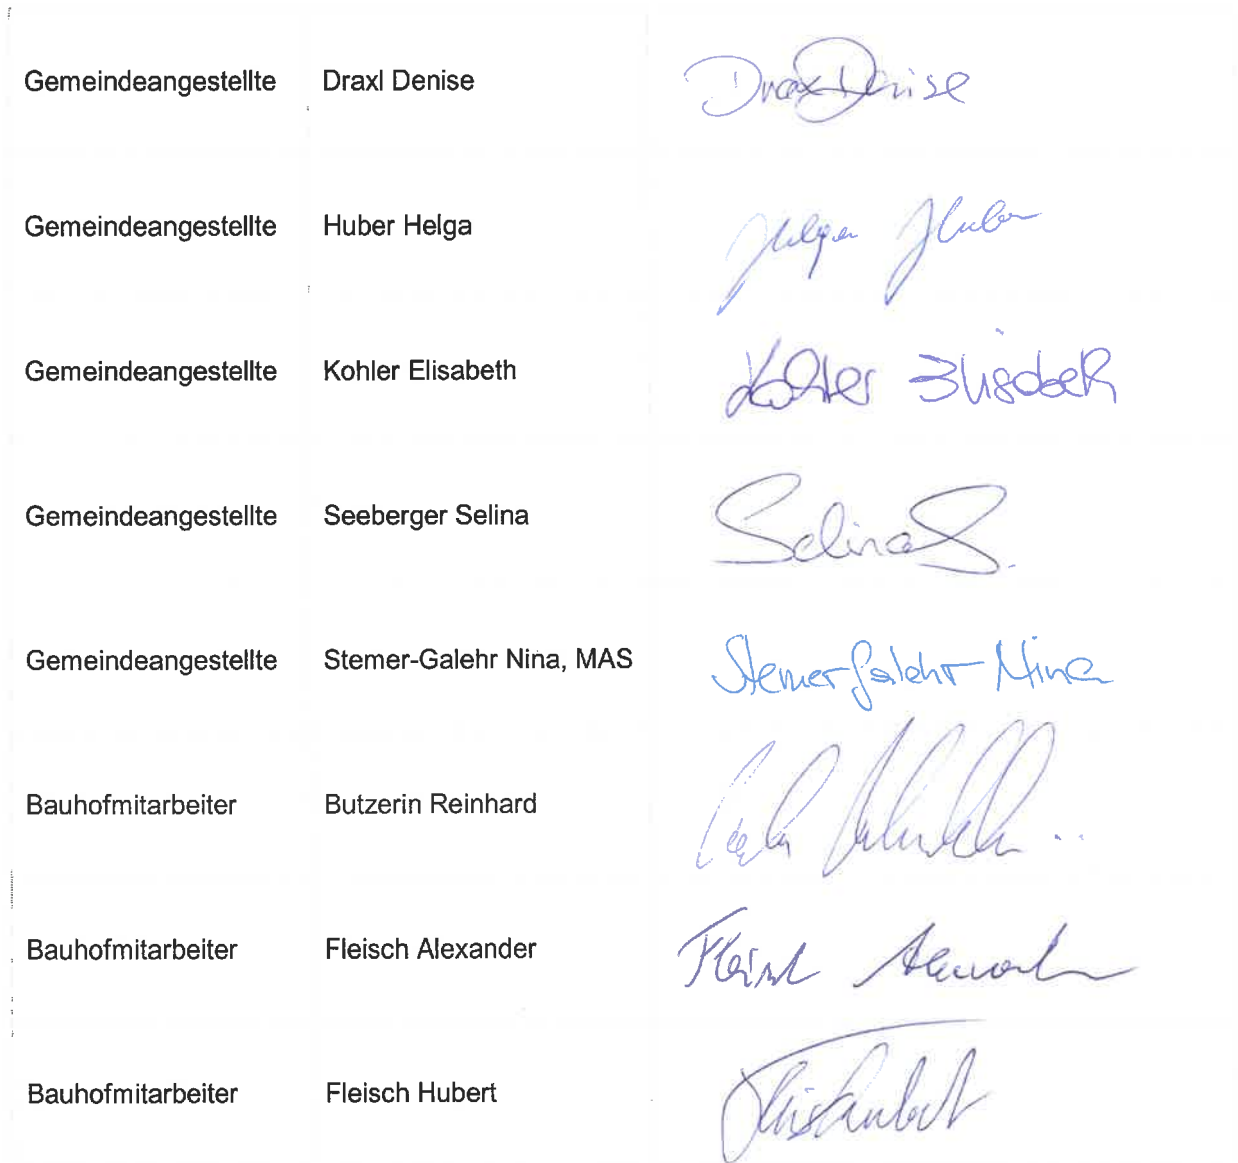 Gemeindeangestellte Draxl Denise Draxl Denise
Gemeindeangestellte Huber Helga Helga Huber
Gemeindeangestellte Kohler Elisabeth Kohler Elisabeth
Gemeindeangestellte Seeberger Selina Selina S.
Gemeindeangestellte Stemer-Galehr Nina, MAS Stemer-Galehr Nina
Bauhofmitarbeiter Butzerin Reinhard
Bauhofmitarbeiter Fleisch Alexander Fleisch Alexander
Bauhofmitarbeiter Fleisch Hubert